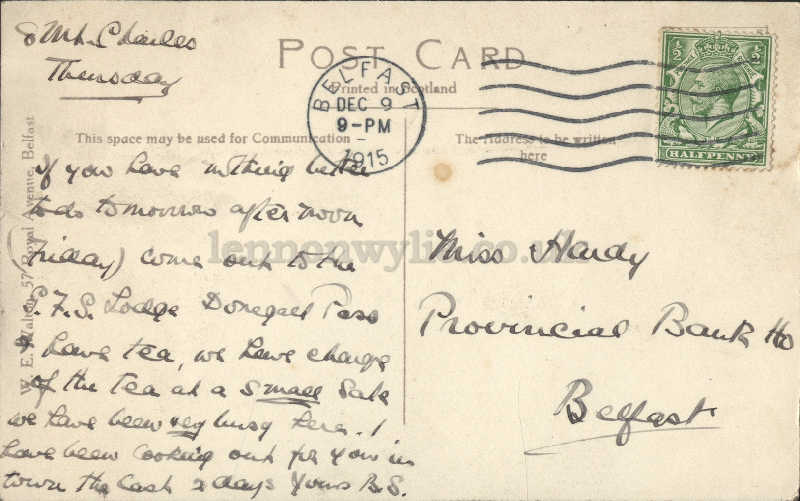 8 Mt. Charles
Thursday
POST CARD
Printed in Scotland
BELFAST
DEC 9
9-PM
1915
½ ½
POSTAGE
HALFPENNY
This space may be used for Communication
The Address to be written
here
If you have nothing better
to do tomorrow afternoon
(Friday) come out to the
G.F.S. Lodge Donegall Pass
& have tea, we have charge
of the Tea at a small Sale
we have been very busy here. I
have been looking out for you in
town the last 2 days Yours B.S.
Miss Hardy
Provincial Bank Ho
Belfast
W. E. Walton, 57 Royal Avenue, Belfast
lennonwylie.co.uk